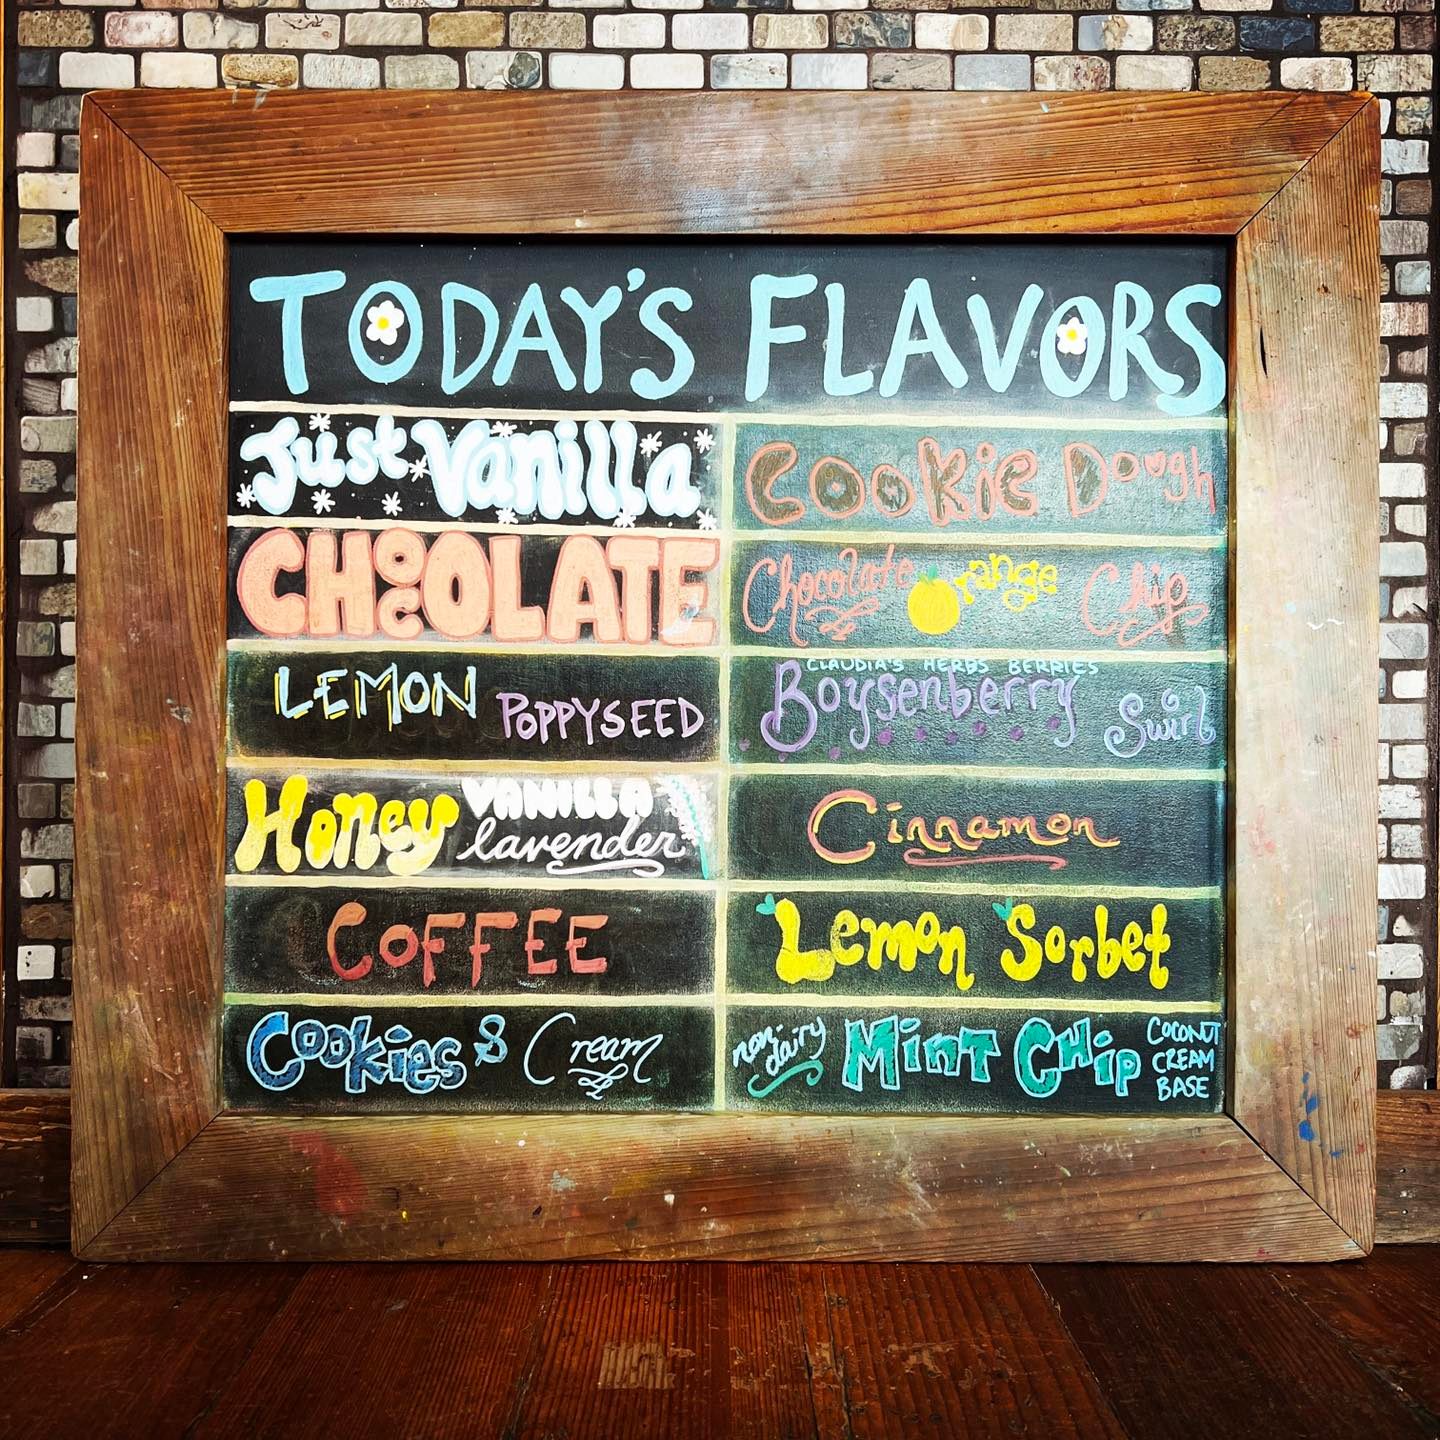 TODAY'S FLAVORS
Just Vanilla
CHOCOLATE
LEMON POPPYSEED
Honey VANILLA
lavender
COFFEE
Cookies & Cream
Cookie Dough
Chocolate Orange Chip
CLAUDIA'S HERBS BERRIES
Boysenberry Swirl
Cinnamon
Lemon Sorbet
non-dairy Mint Chip COCONUT CREAM BASE